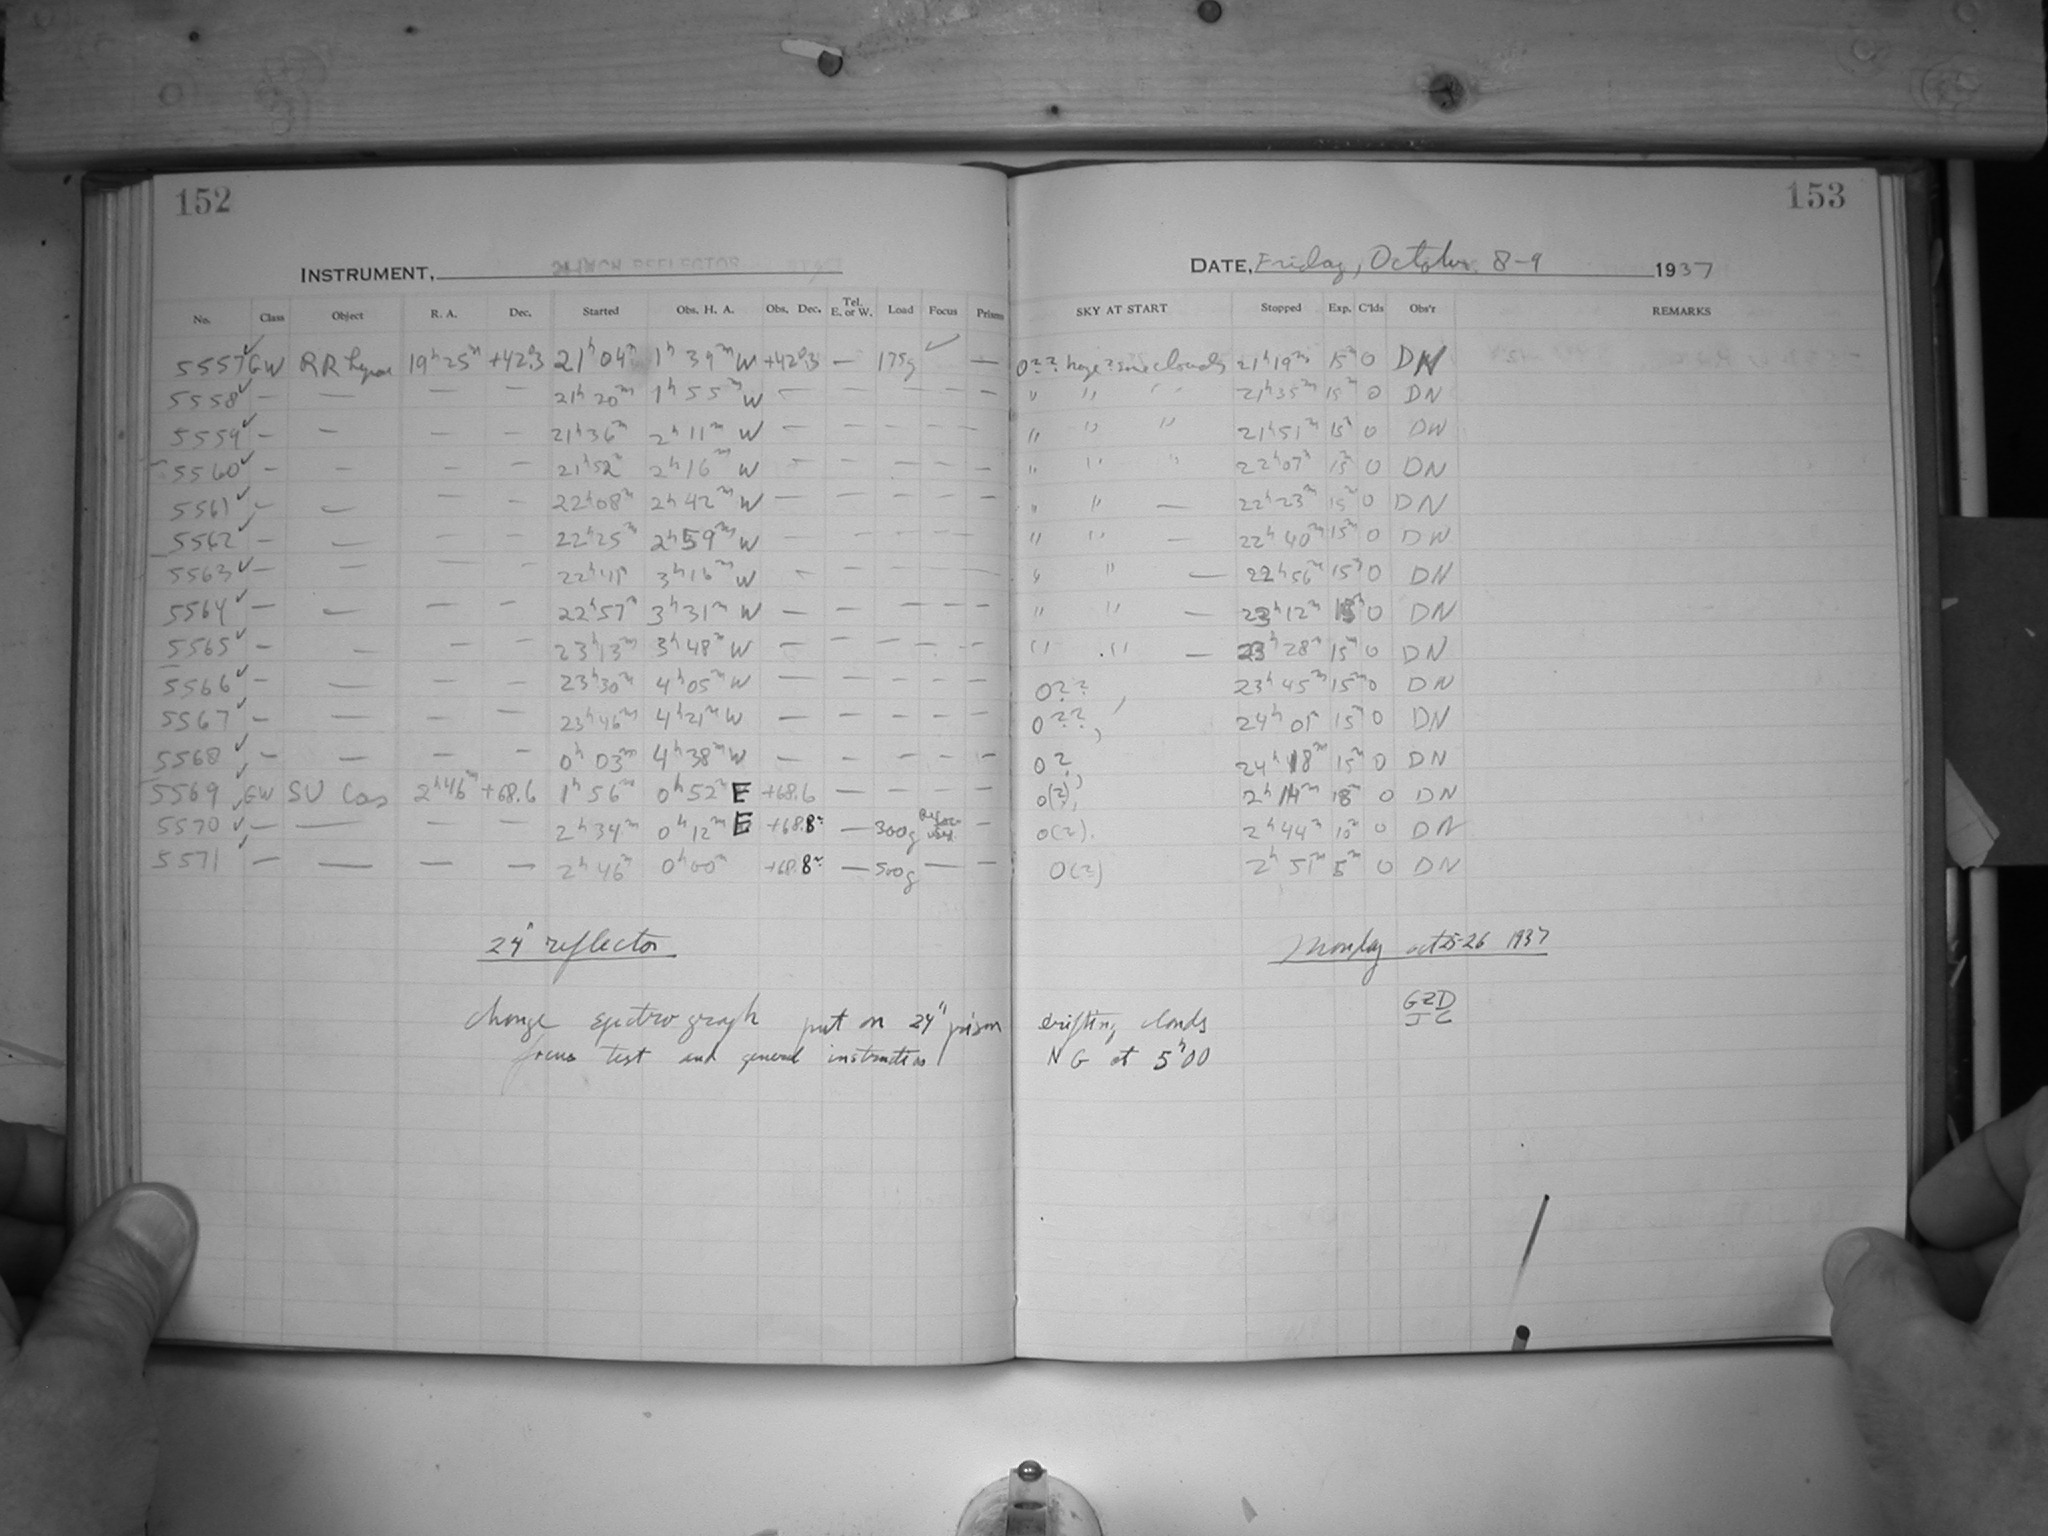 152
153
INSTRUMENT, 24 INCH REFLECTOR
DATE, Friday, October 8-9 1937
No. Class Object R. A. Dec. Started Obs. H. A. Obs. Dec. Tel. E. or W. Load Focus Prisms SKY AT START Stopped Exp. C'lds Obs'r REMARKS
5557 ✓ GW RR Lyrae 19h 25m +42°.3 21h 04m 1h 39m W +42°.3 — 175g ✓ — 0?? haze? some clouds 21h 19m 15m 0 DN
5558 ✓ — — — — 21h 20m 1h 55m W — — — — — " " " 21h 35m 15m 0 DN
5559 ✓ — — — — 21h 36m 2h 11m W — — — — — " " " 21h 51m 15m 0 DN
5560 ✓ — — — — 21h 52m 2h 16m W — — — — — " " " 22h 07m 15m 0 DN
5561 ✓ — — — — 22h 08m 2h 42m W — — — — — " " — 22h 23m 15m 0 DN
5562 ✓ — — — — 22h 25m 2h 59m W — — — — — " " — 22h 40m 15m 0 DN
5563 ✓ — — — — 22h 41m 3h 16m W — — — — — " " — 22h 56m 15m 0 DN
5564 ✓ — — — — 22h 57m 3h 31m W — — — — — " " — 23h 12m 15m 0 DN
5565 ✓ — — — — 23h 13m 3h 48m W — — — — — " " — 23h 28m 15m 0 DN
5566 ✓ — — — — 23h 30m 4h 05m W — — — — — 0?? 23h 45m 15m 0 DN
5567 ✓ — — — — 23h 46m 4h 21m W — — — — — 0??, 24h 01m 15m 0 DN
5568 ✓ — — — — 0h 03m 4h 38m W — — — — — 0? 24h 18m 15m 0 DN
5569 ✓ GW SU Cas 2h 46m +68.6 1h 56m 0h 52m E +68.6 — — — — 0(?), 2h 14m 18m 0 DN
5570 ✓ — — — — 2h 34m 0h 12m E +68.8 — 300g Refocused — 0(?). 2h 44m 10m 0 DN
5571 ✓ — — — — 2h 46m 0h 00m +68.8 — 500g — — 0(?) 2h 51m 5m 0 DN
24" reflector Monday oct 25-26 1937
change spectrograph put on 24" prism drifting clouds GZD JC
focus test and general instruction NG at 5h00